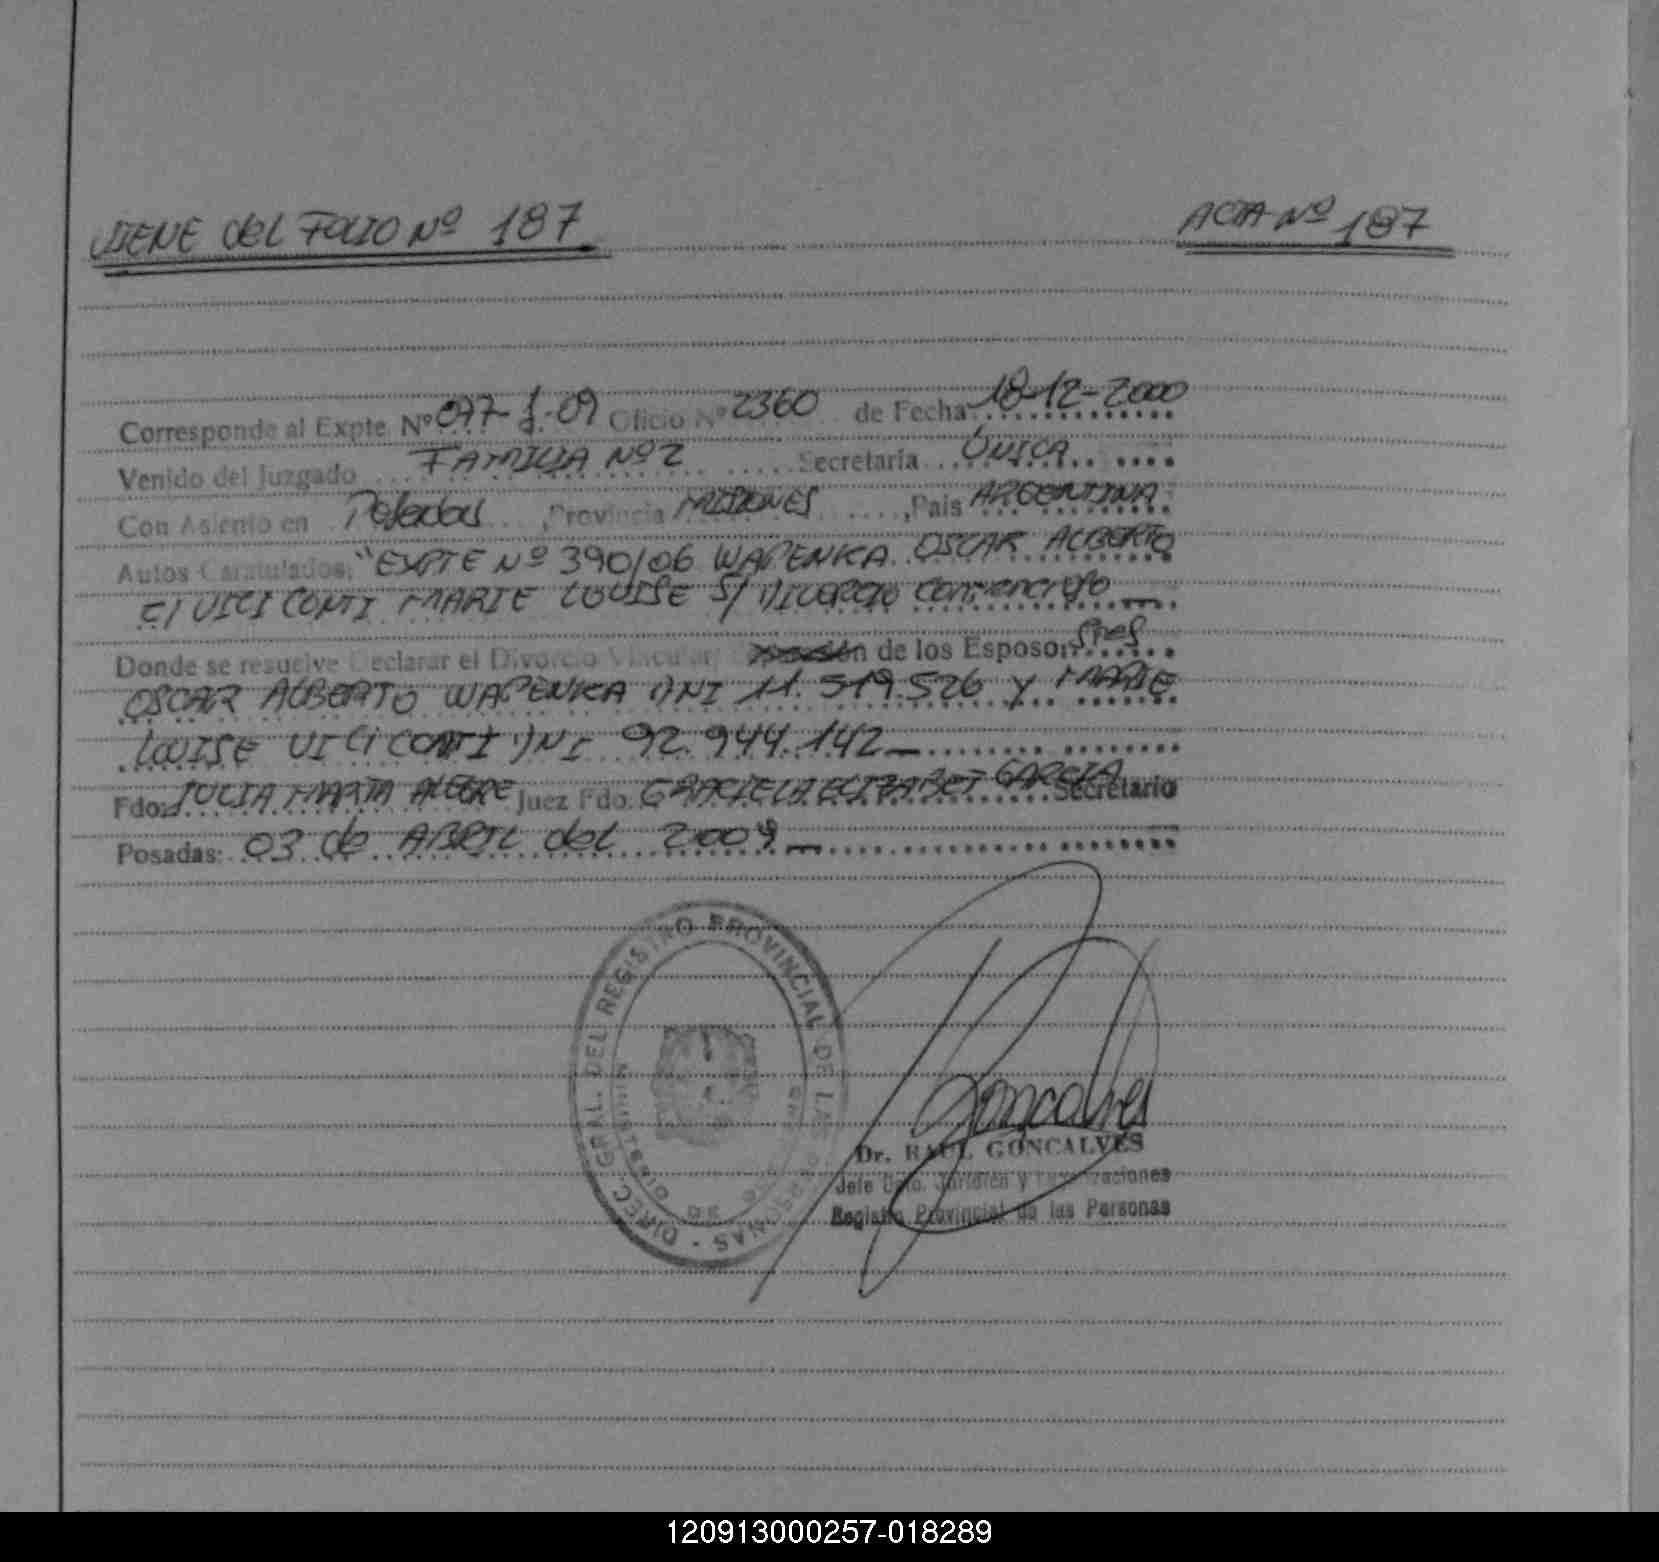 VIENE del FOLIO Nº 187 ACTA Nº 187
Corresponde al Expte Nº 077-J-09 Oficio Nº 2360 de Fecha 18-12-2000
Venido del Juzgado FAMILIA Nº 2 Secretaría ÚNICA
Con Asiento en Posadas, Provincia MISIONES, País ARGENTINA
Autos Caratulados: "EXPTE Nº 390/06 WAPENKA OSCAR ALBERTO
C/ VICI CONTI MARIE LOUISE S/ DIVORCIO
Donde se resuelve Declarar el Divorcio Vincular, de los Esposos Sres
OSCAR ALBERTO WAPENKA DNI 11.519.526 Y MARIE
LOUISE VICI CONTI DNI 92.944.142
Fdo: JULIA MARTA ALEGRE Juez Fdo. GRACIELA ELIZABET GARCIA Secretario
Posadas: 03 de ABRIL del 2009
DIREC. GRAL. DEL REGISTRO PROVINCIAL DE LAS PERSONAS
Goncalves
Dr. RAUL GONCALVES
Jefe Dpto. Jurídica y
Registro Provincial de las Personas
120913000257-018289